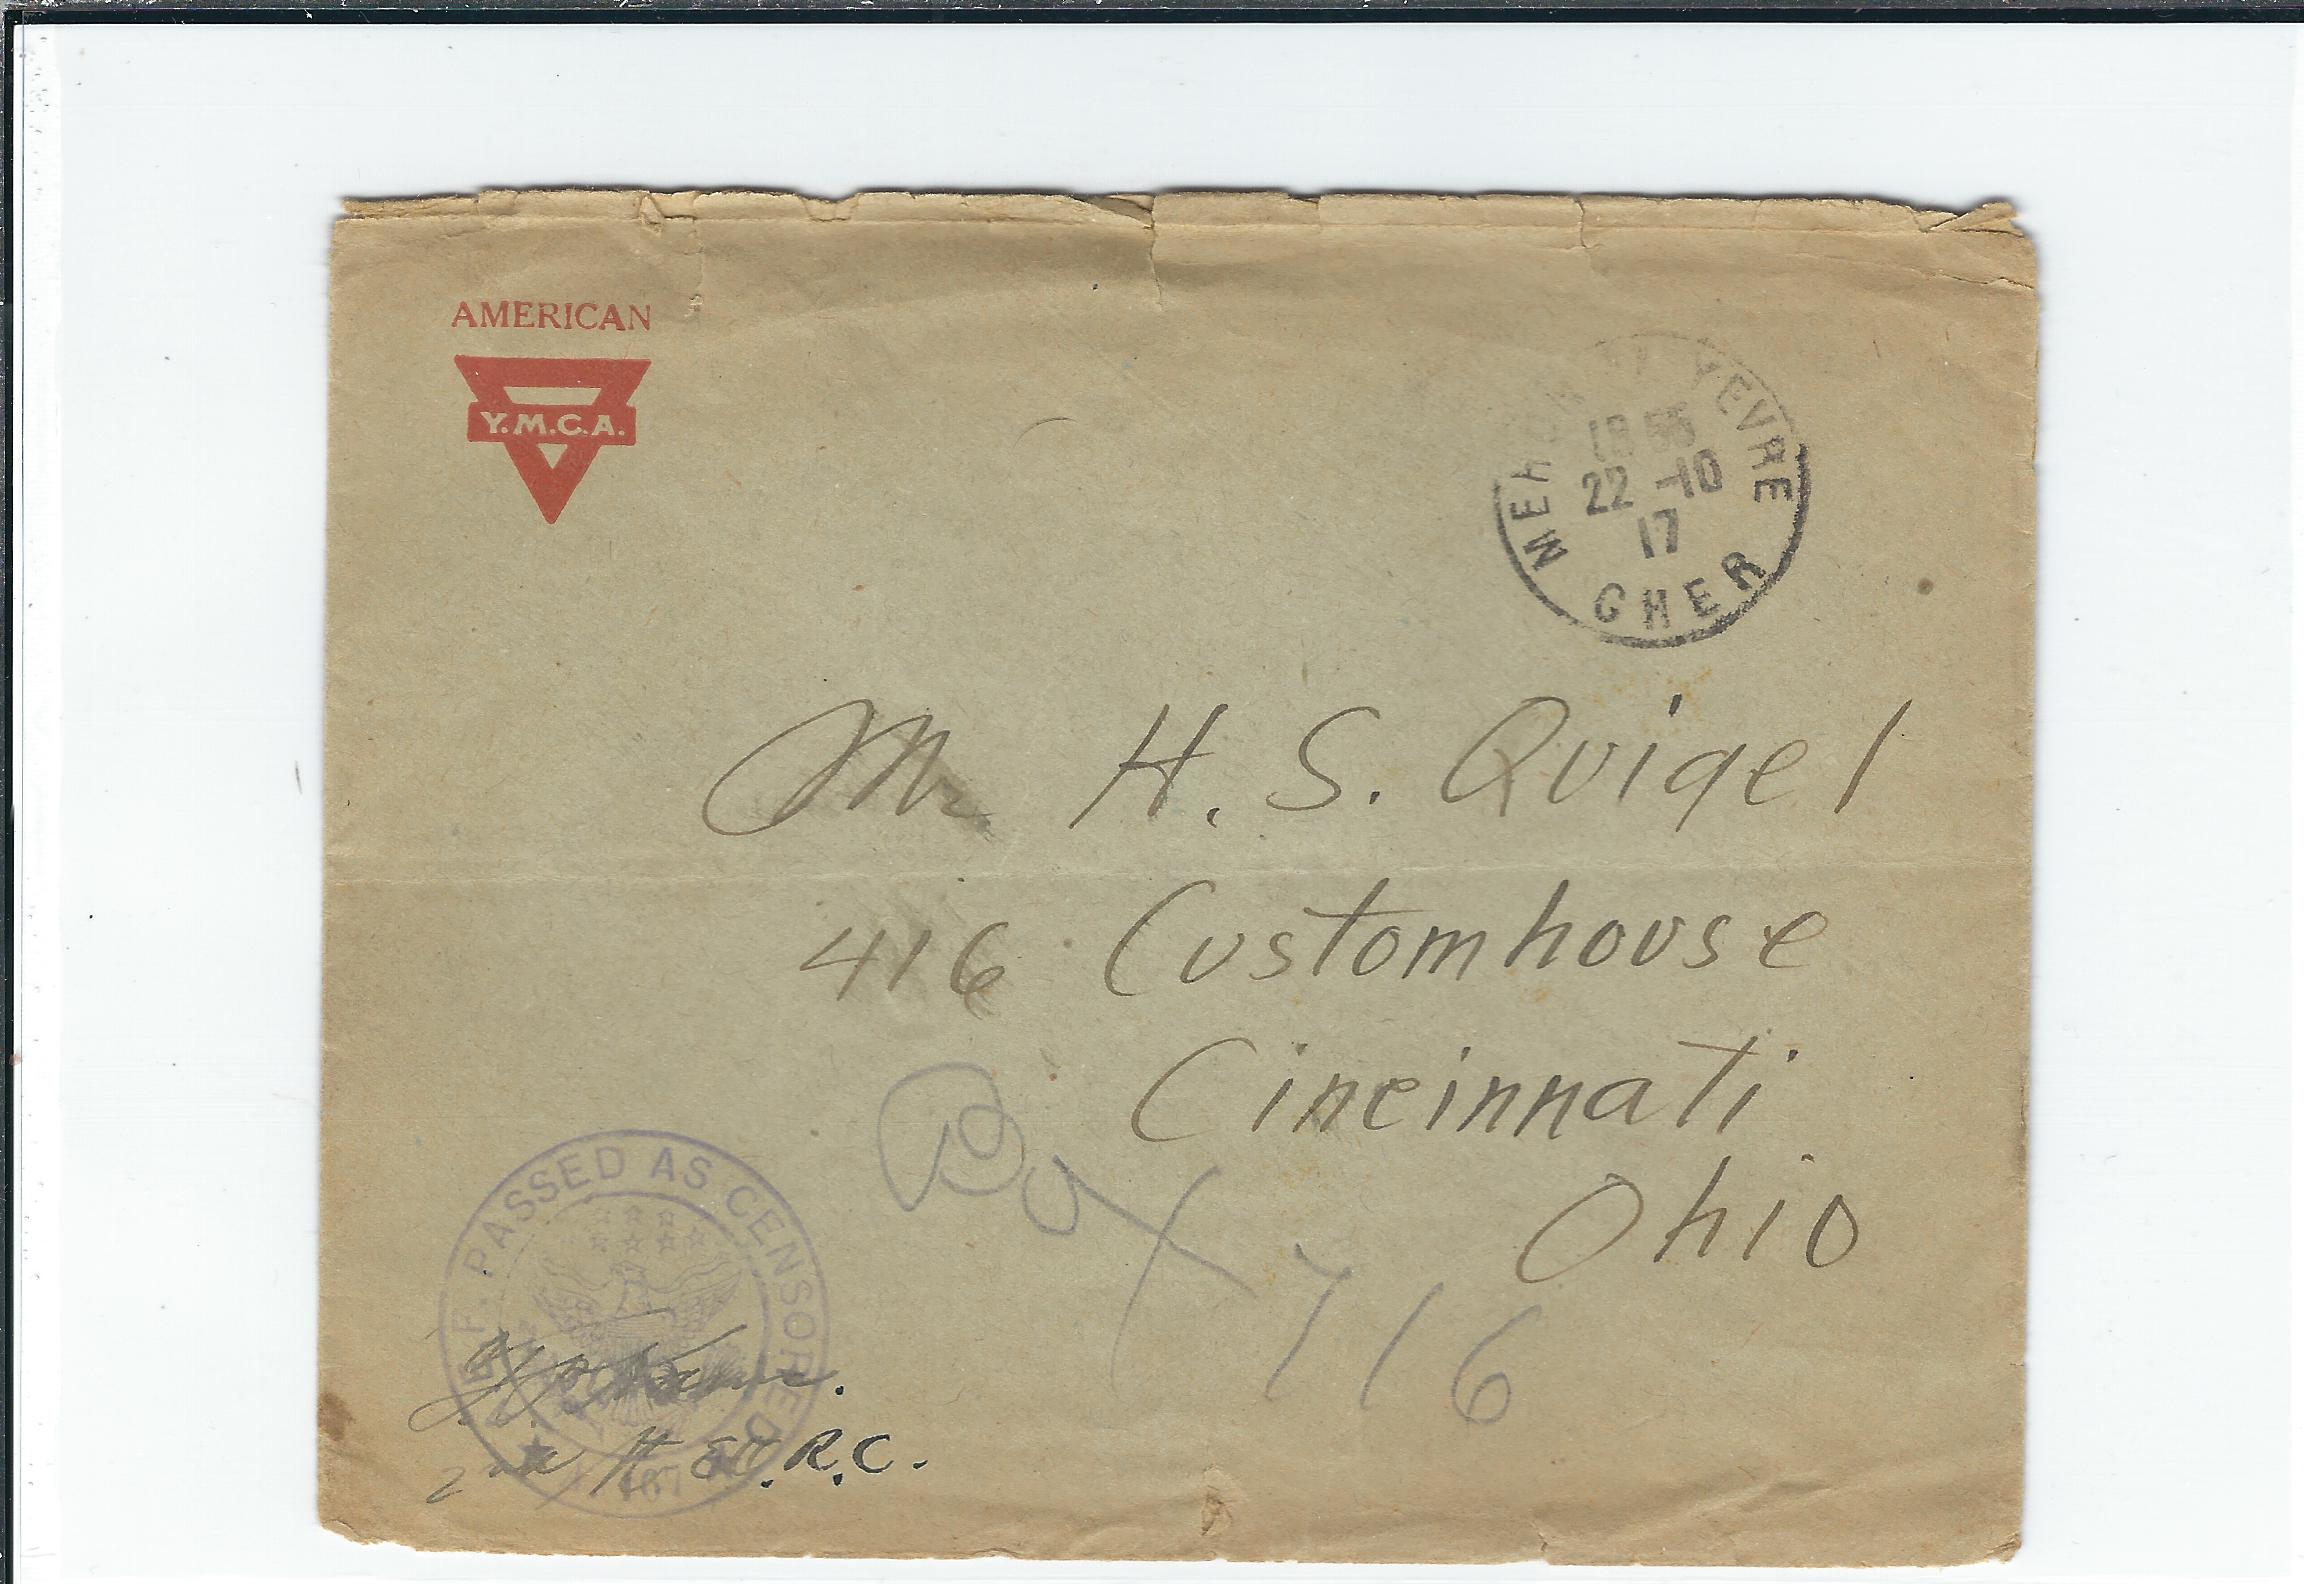 AMERICAN
Y.M.C.A.
MEHUN YEVRE
18 55
22 -10
17
CHER
Mr H. S. Quigel
416 Customhouse
Cincinnati
Ohio
Box 716
A.E.F. PASSED AS CENSORED
167
R.C.